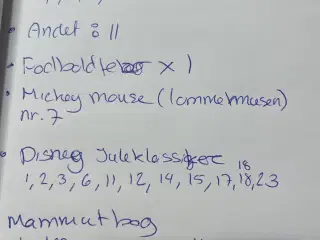 • Andet : 11
• Fodbold x 1
• Mickey mouse (lommemusen)
nr. 7
• Disney Juleklassiker
18
1, 2, 3, 6, 11, 12, 14, 15, 17, 18, 23
Mammutbog